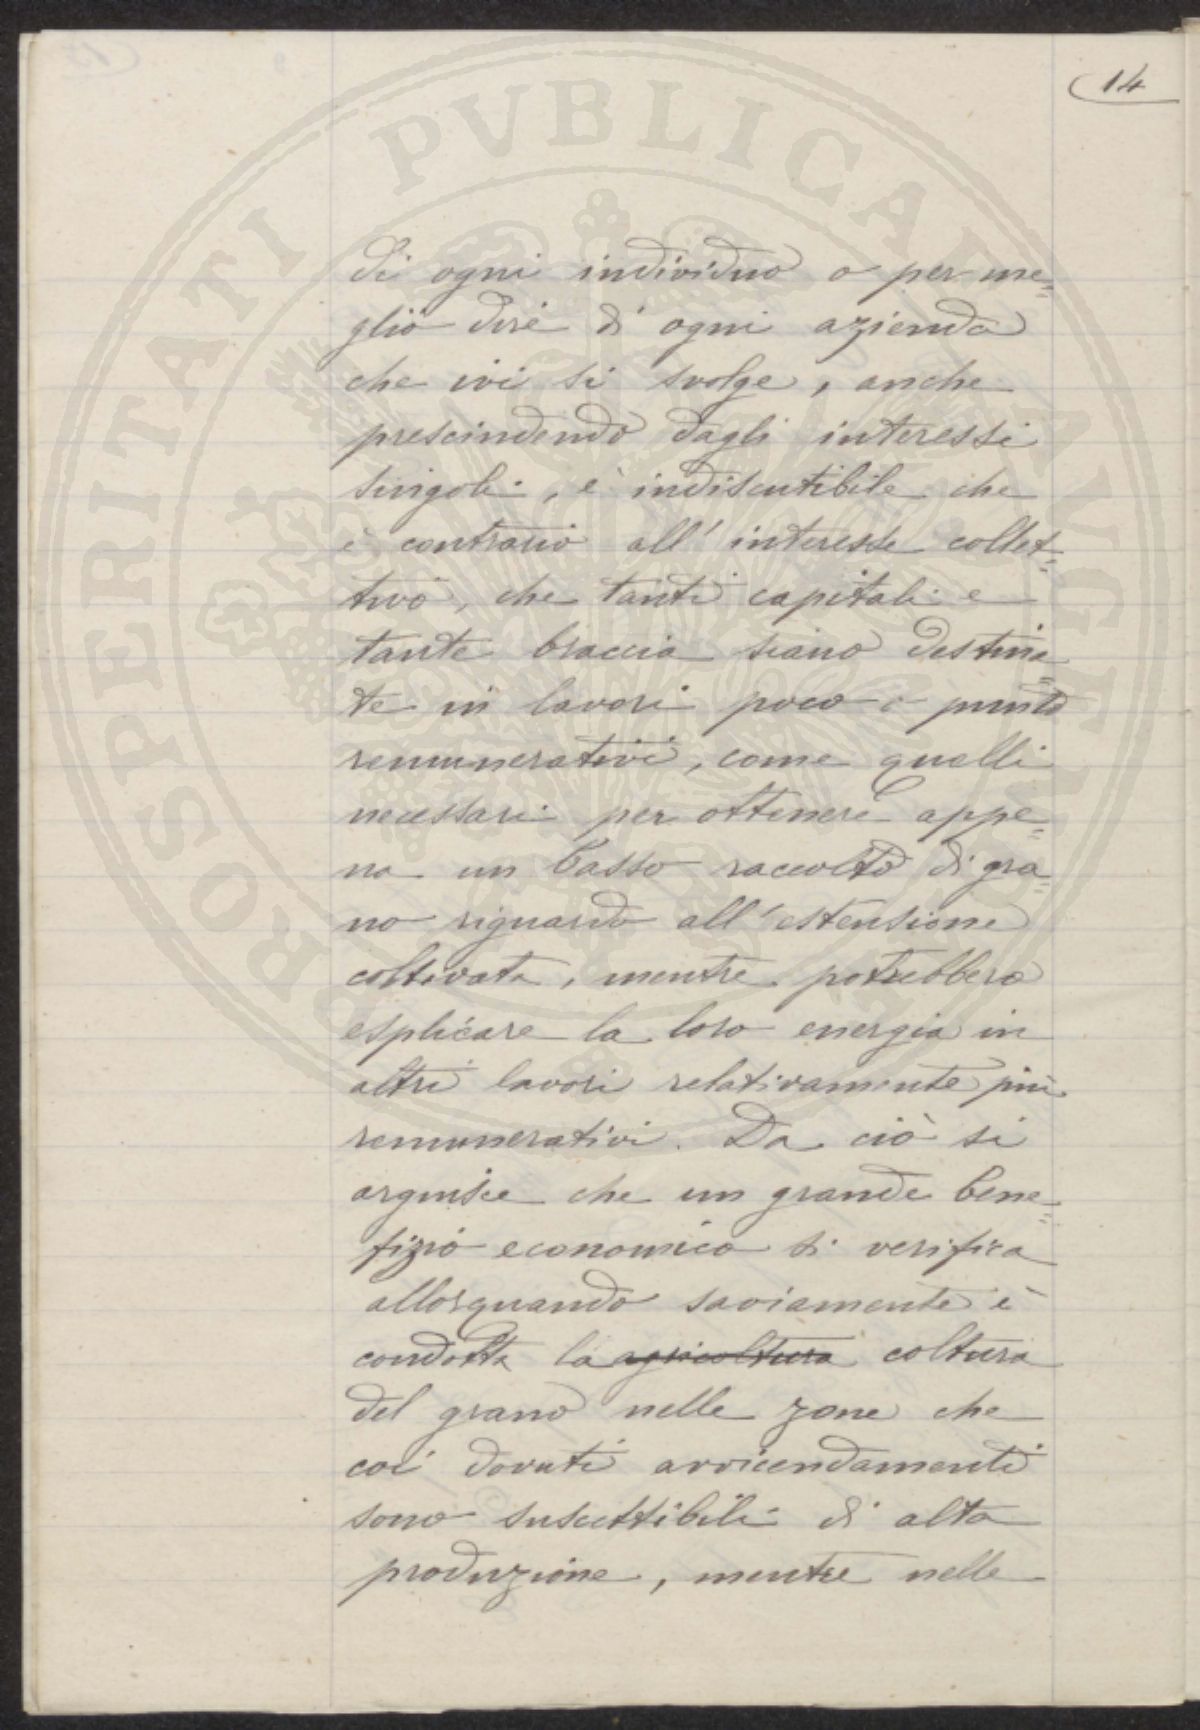 14
di ogni individuo o per me=
glio dire di ogni azienda
che ivi si svolge, anche
prescindendo dagli interessi
singoli, è indiscutibile che
è contrario all'interesse collet=
tivo, che tanti capitali e
tante braccia siano destina=
te in lavori poco o punto
remunerativi, come quelli
necessari per ottenere appe=
na un basso raccolto di gra=
no riguardo all'estensione
coltivata, mentre potrebbero
esplicare la loro energia in
altri lavori relativamente più
remunerativi. Da ciò si
arguisce che un grande bene=
fizio economico si verifica
allorquando saviamente è
condotta la agricoltura coltura
del grano nelle zone che
coi dovuti avvicendamenti
sono suscettibili di alta
produzione, mentre nelle
PROSPERITATI PVBLICAE AVGENDAE